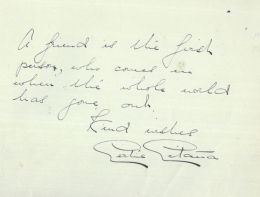 A friend is the first
person, who comes in
when the whole world
has gone out.
Kind wishes